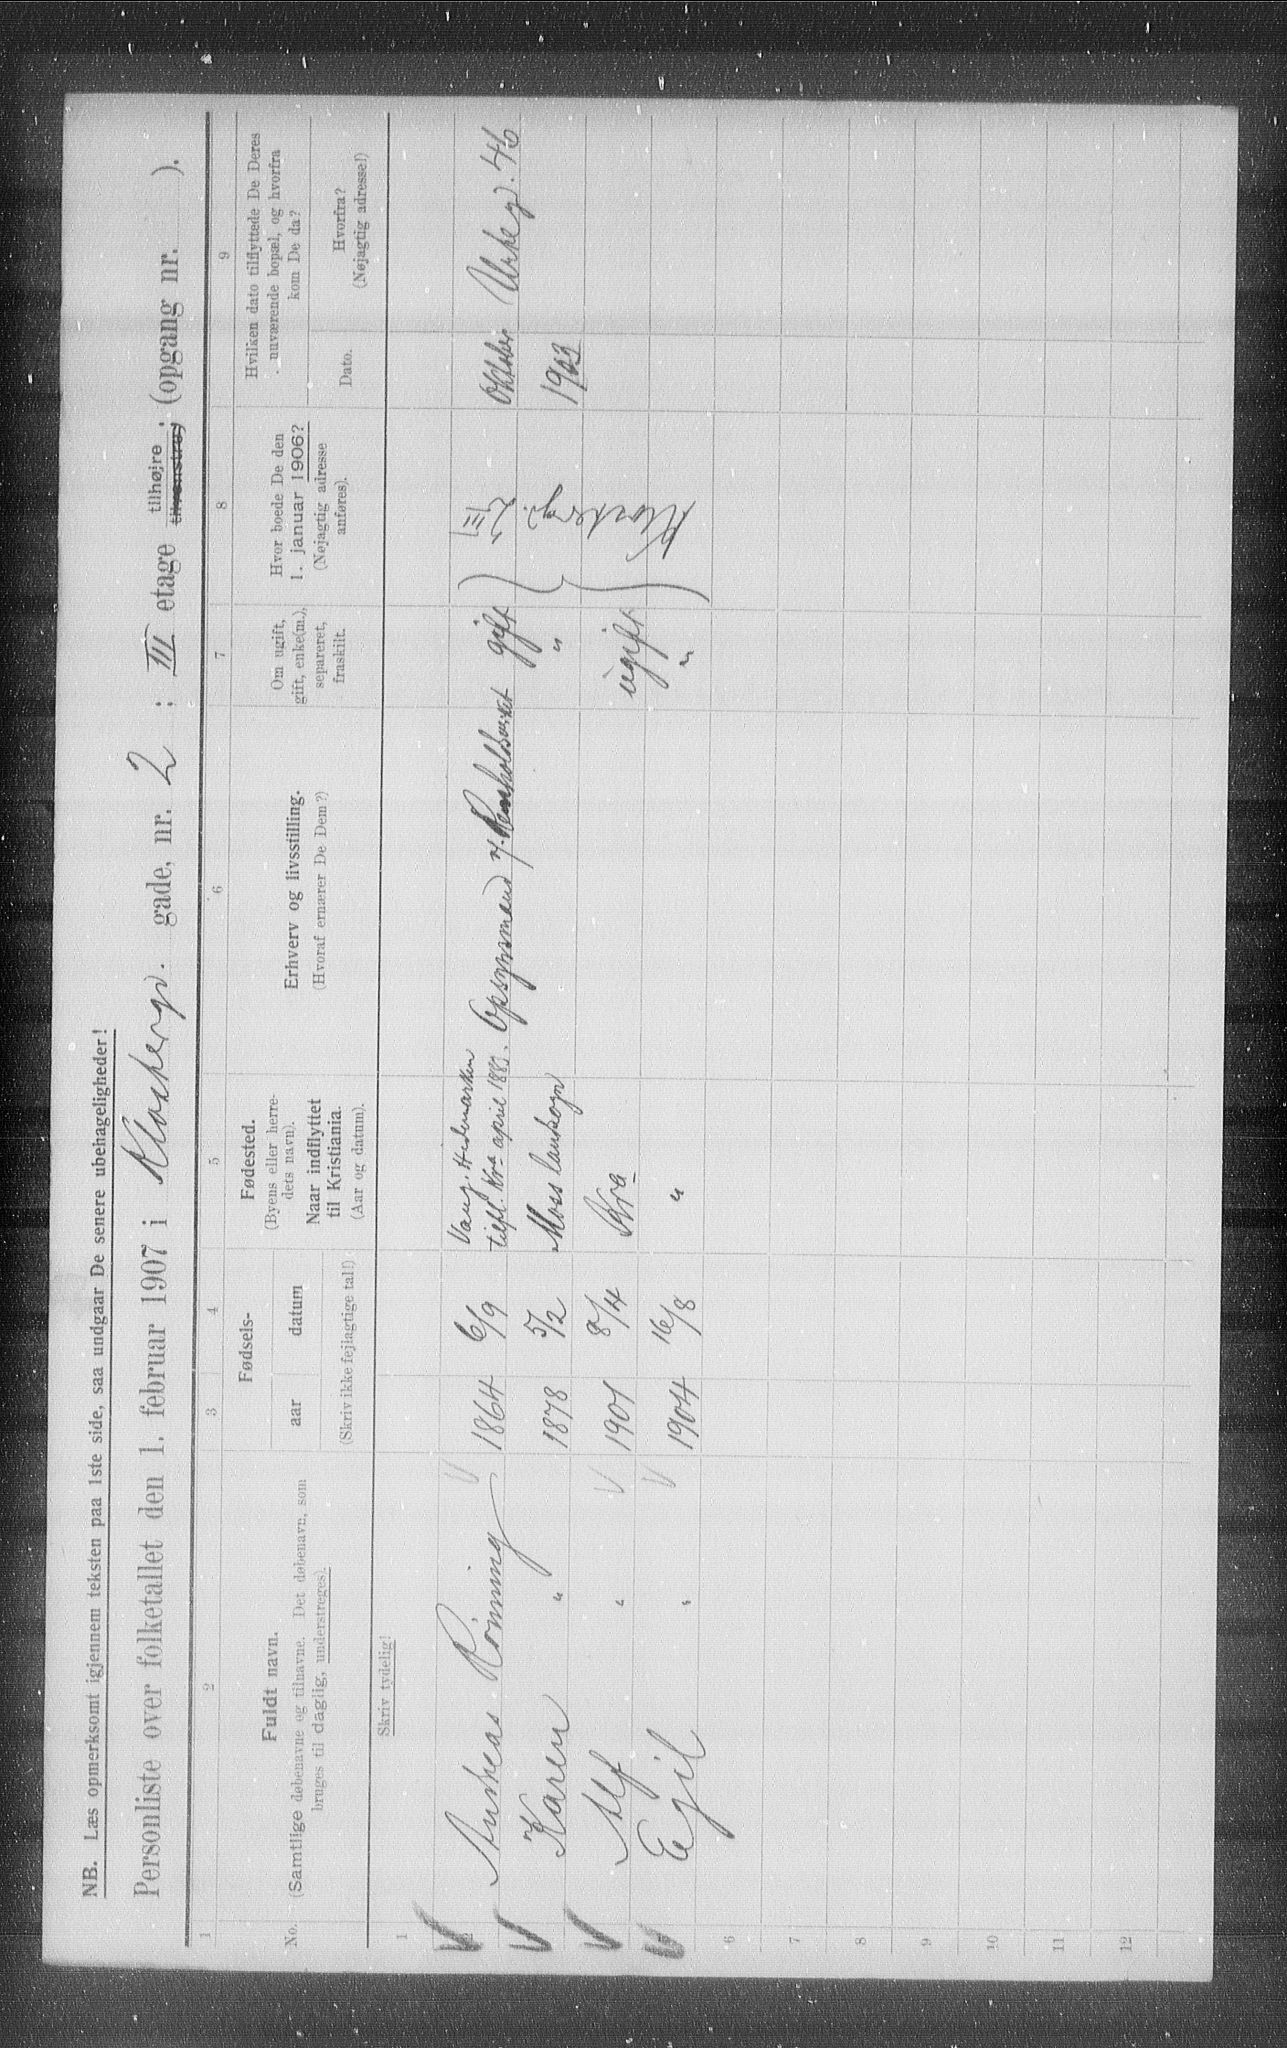 NB. Læs opmerksomt igjennem teksten paa 1ste side, saa undgaar De senere ubehageligheder!
Personliste over folketallet den 1. februar 1907 i Klosterg. gade, nr. 2 ; III etage tilhøjre tilvenstre; (opgang nr. ).
1 2 3 4 5 6 7 8 9
No.
Fuldt navn.
(Samtlige døbenavne og tilnavne. Det døbenavn, som
bruges til daglig, understreges).
Fødsels-
aar datum
(Skriv ikke fejlagtige tal!)
Fødested.
(Byens eller herre-
dets navn).
Naar indflyttet
til Kristiania.
(Aar og datum).
Erhverv og livsstilling.
(Hvoraf ernærer De Dem?)
Om ugift,
gift, enke(m.),
separeret,
fraskilt.
Hvor boede De den
1. januar 1906?
(Nøjagtig adresse
anføres).
Hvilken dato tilflyttede De Deres
nuværende bopæl, og hvorfra
kom De da?
Dato.
Hvorfra?
(Nøjagtig adresse!)
Skriv tydelig!
1
2 Andreas Rönning 1864 6/9 Vang. Hedemarken
tilfl. Kra april 1883. Opsynsmand v. Renholdsvæset gift Oktober Urteg. 46
Karen " 1878 5/2 Moss landsogn " 1903
Alf " 1901 8/4 Kra ugift
Egil " 1904 16/8 " "
Klosterg. 2 III
6
7
8
9
10
11
12